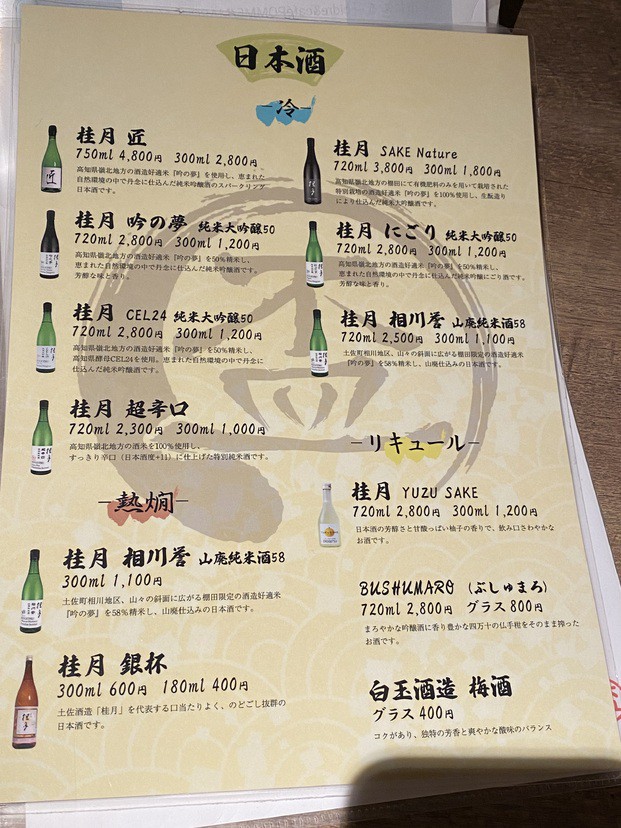 日本酒
冷
桂月 匠
750ml 4,800円 300ml 2,800円
高知県嶺北地方の酒造好適米『吟の夢』を使用し、恵まれた
自然環境の中で丹念に仕込んだ純米吟醸酒のスパークリング
日本酒です。
桂月 吟の夢 純米大吟醸50
720ml 2,800円 300ml 1,200円
高知県嶺北地方の酒造好適米『吟の夢』を50%精米し、
恵まれた自然環境の中で丹念に仕込んだ純米吟醸酒です。
芳醇な味と香り。
桂月 CEL24 純米大吟醸50
720ml 2,800円 300ml 1,200円
高知県嶺北地方の酒造好適米『吟の夢』を50%精米し、
高知県酵母CEL24を使用。恵まれた自然環境の中で丹念に
仕込んだ純米吟醸酒です。
桂月 超辛口
720ml 2,300円 300ml 1,000円
高知県嶺北地方の酒米を100%使用し、
すっきり辛口(日本酒度+11)に仕上げた特別純米酒です。
熱燗
桂月 相川誉 山廃純米酒58
300ml 1,100円
土佐町相川地区、山々の斜面に広がる棚田限定の酒造好適米
『吟の夢』を58%精米し、山廃仕込みの日本酒です。
桂月 銀杯
300ml 600円 180ml 400円
土佐酒造「桂月」を代表する口当たりよく、のどごし抜群の
日本酒です。
桂月 SAKE Nature
720ml 3,800円 300ml 1,800円
高知県嶺北地方の棚田にて有機肥料のみを用いて栽培された
特別栽培の酒造好適米『吟の夢』を100%使用し、生酛造り
により仕込んだ純米大吟醸酒です。
桂月 にごり 純米大吟醸50
720ml 2,800円 300ml 1,200円
高知県嶺北地方の酒造好適米『吟の夢』を50%精米し、
恵まれた自然環境の中で丹念に仕込んだ純米吟醸にごり酒です。
芳醇な味と香り。
桂月 相川誉 山廃純米酒58
720ml 2,500円 300ml 1,100円
土佐町相川地区、山々の斜面に広がる棚田限定の酒造好適米
『吟の夢』を58%精米し、山廃仕込みの日本酒です。
リキュール
桂月 YUZU SAKE
720ml 2,800円 300ml 1,200円
日本酒の芳醇さと甘酸っぱい柚子の香りで、飲み口さわやかな
お酒です。
BUSHUMARO (ぶしゅまろ)
720ml 2,800円 グラス 800円
まろやかな吟醸酒に香り豊かな四万十の仏手柑をそのまま搾った
お酒です。
白玉酒造 梅酒
グラス 400円
コクがあり、独特の芳香と爽やかな酸味のバランス